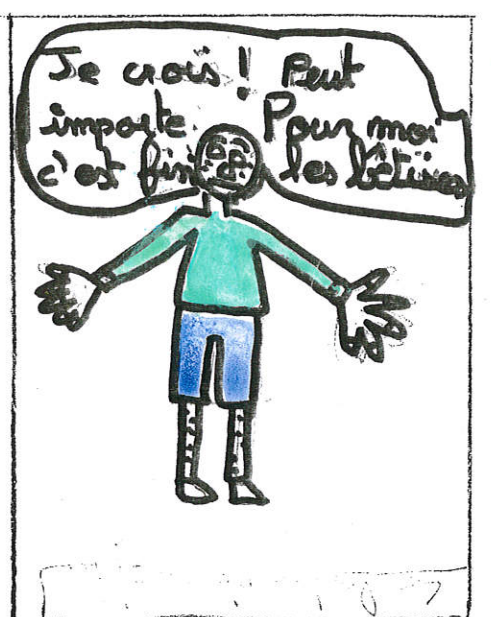 Je crois ! Peut
importe. Pour moi
c'est fini les bêtises